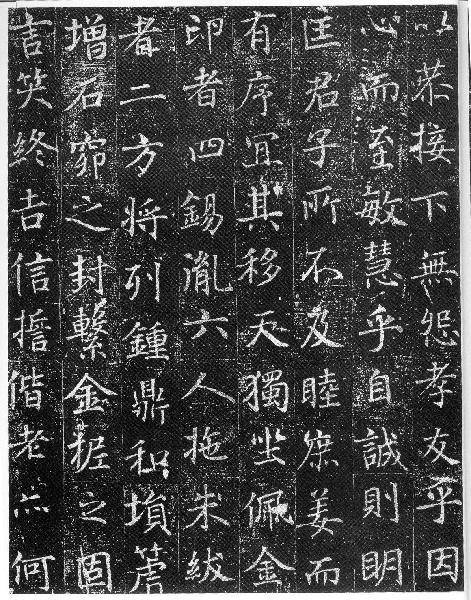 以恭接下無怨孝友乎因
心而至敏慧乎自誠則明
匡君子所不及睦姜而
有序宜其移天獨坐佩金
印者四錫胤六人拖朱紱
者二方将列鍾鼎和塤箎
增石窌之封繫金柅之固
言笑終吉信擔偕老亦何